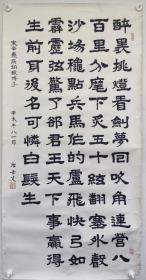 醉裏挑燈看劍夢回吹角連營八
百里分麾下炙五十絃翻塞外聲
沙場穐點兵馬作的盧飛快弓如
霹靂弦驚了卻君王天下事贏得
生前身後名可憐白髮生
宋辛棄疾詞破陣子
辛未年八一